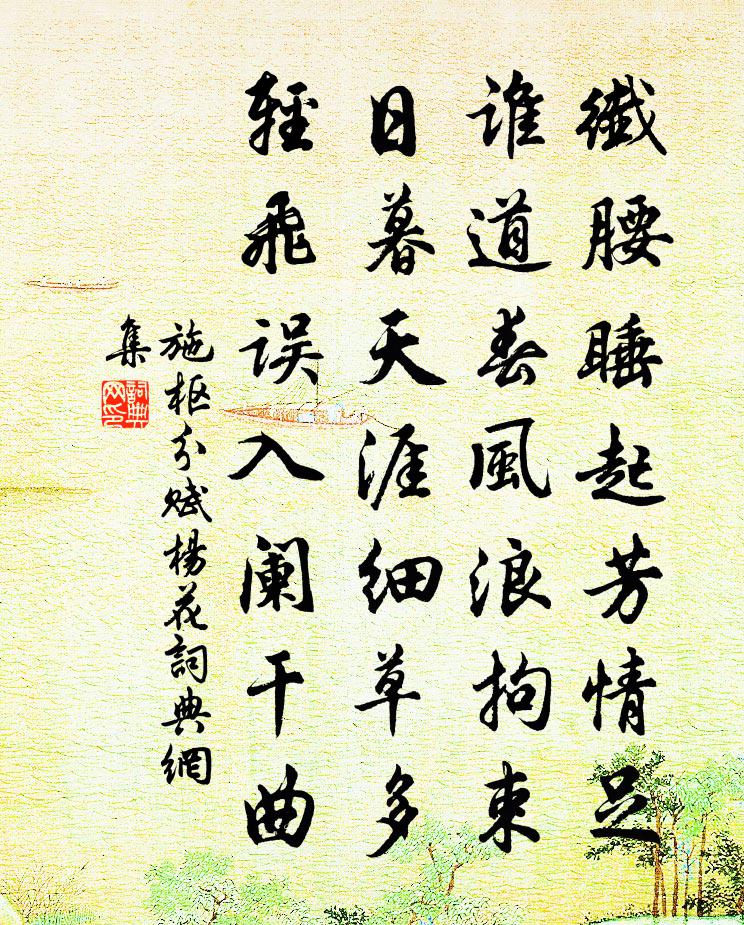 纖腰睡起芳情足
誰道春風浪拘束
日暮天涯細草多
輕飛误入阑干曲
施枢分赋楊花詞典網
集
詞典
网印